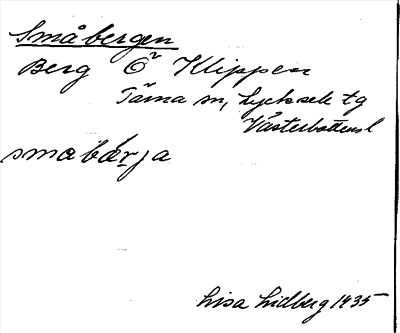 Småbergen
Berg Ör Klippen
Tärna sn, Lycksele tg
Västerbottens l
smabærja
Lisa Lidberg 1935